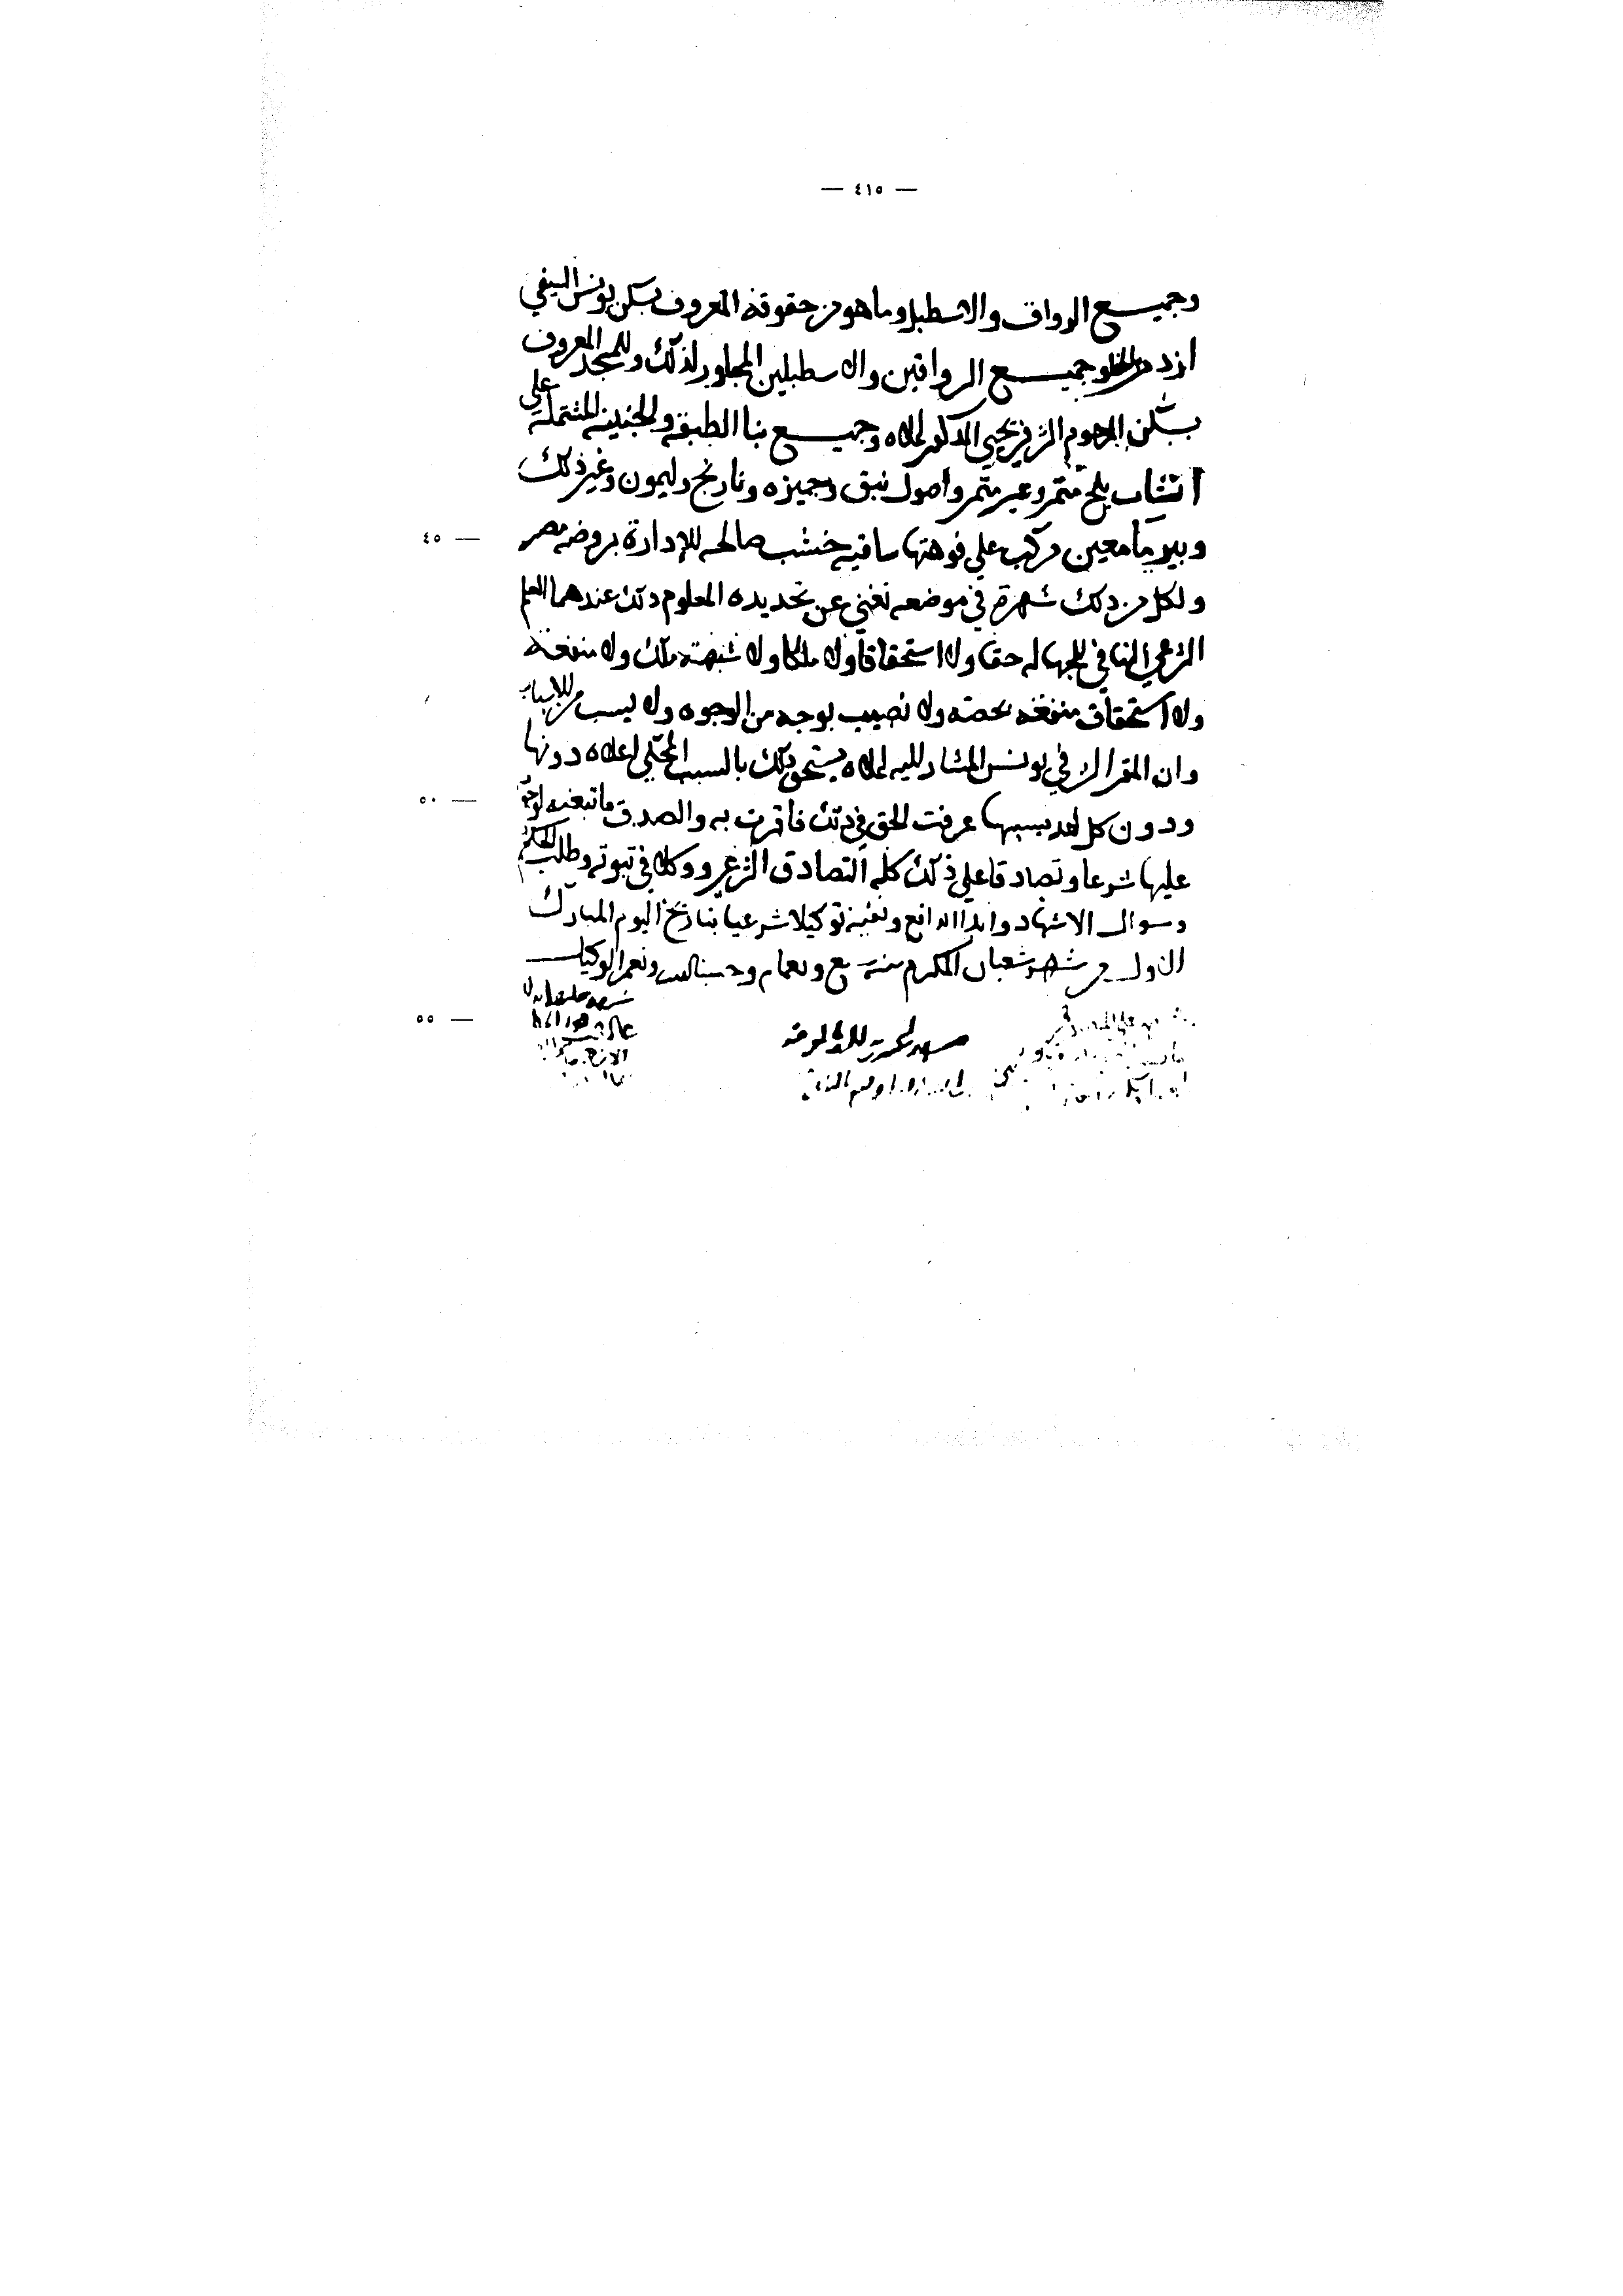 — ٤١٥ —
وجميع الرواق والاسطبل وما هو من حقوقه المعروف بسكن يونس السيفي
ازدمر وجميع الرواقين والاسطبلين المجاور لذلك وللمسجد المعروف
بسكن المرحوم الشرفي يحيى المذكور اعلاه وجميع بنا الطبقه والجنينه المشتمله على
انشاب بلح مثمر وغير مثمر واصول نبق وجميزه ونارنج وليمون وغير ذلك
وبير ما معين مركب على فوهتها ساقيه خشب صالحه للإدارة بروضه مصر — ٤٥
ولكل من ذلك شهرة في موضعه تغني عن تحديده المعلوم ذلك عندهما العلم
الشرعي النافي للجهاله حقا ولا استحقاقا ولا ملكا ولا شبهة ملك ولا منفعة
ولا استحقاق منفعه بحصه ولا نصيب بوجه من الوجوه ولا بسبب من الاسباب
وان المقر الشرفي يونس المشار اليه اعلاه يستحق ذلك بالسبب المحكي اعلاه دونها
ودون كل احد بسببها عرفت الحق في ذلك فاقرت به والصدق فاتبعته لوجوبه — ٥٠
عليها شرعا وتصادقا على ذلك كله التصادق الشرعي ووكلا في ثبوته وطلب الحكم
وسوال الاشهاد وابدا الدافع ونفيه توكيلا شرعيا بتاريخ اليوم المبارك
الاول من شهر شعبان المكرم سنة وحسبنا الله ونعم الوكيل
— ٥٥